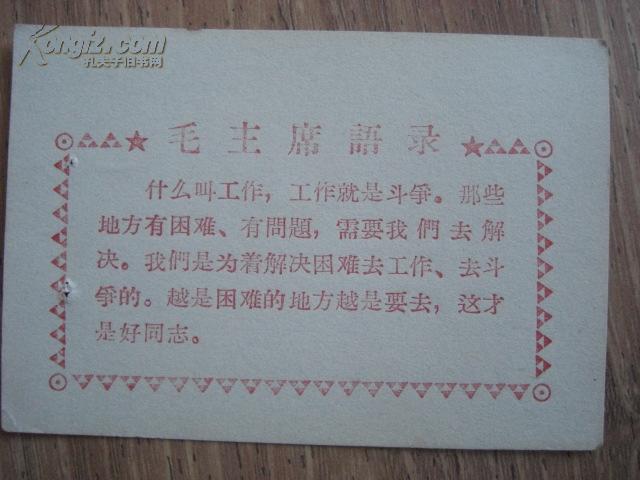 Kongfz.com
孔夫子旧书网
毛主席語录
什么叫工作，工作就是斗爭。那些
地方有困难、有問題，需要我們去解
决。我們是为着解决困难去工作、去斗
爭的。越是困难的地方越是要去，这才
是好同志。